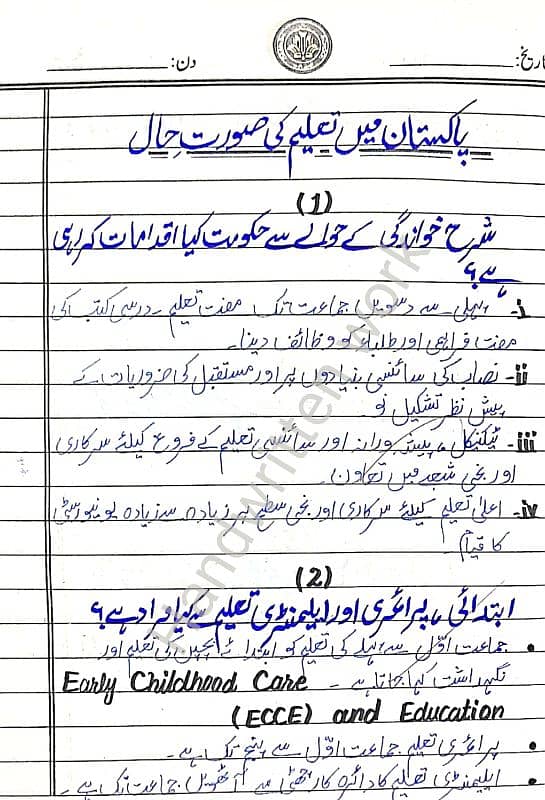 تاریخ: دن:
پاکستان میں تعلیم کی صورت حال
(1)
شرح خواندگی کے حوالے سے حکومت کیا اقدامات کر رہی
ہے؟
i- پہلی سے دسویں جماعت تک مفت تعلیم - درسی کتب کی
مفت فراہمی اور طلباء کو وظائف دینا۔
ii- نصاب کی سائنسی بنیادوں پر اور مستقبل کی ضروریات کے
پیش نظر تشکیل نو۔
iii- ٹیکنیکل، پیشہ ورانہ اور سائنسی تعلیم کے فروغ کیلئے سرکاری
اور نجی شعبہ میں تعاون۔
iv- اعلیٰ تعلیم کیلئے سرکاری اور نجی سطح پر زیادہ سے زیادہ یونیورسٹی
کا قیام۔
(2)
ابتدائی، پرائمری اور ایلیمنٹری تعلیم سے کیا مراد ہے؟
• جماعت اوّل سے پہلے کی تعلیم کو ابتدائے بچپن کی تعلیم اور
نگہداشت کہا جاتا ہے - Early Childhood Care
(ECCE) and Education
• پرائمری تعلیم جماعت اوّل سے پنجم تک ہے۔
• ایلیمنٹری تعلیم کا دائرہ کار چھٹی سے آٹھویں جماعت تک ہے -
Handwritten work